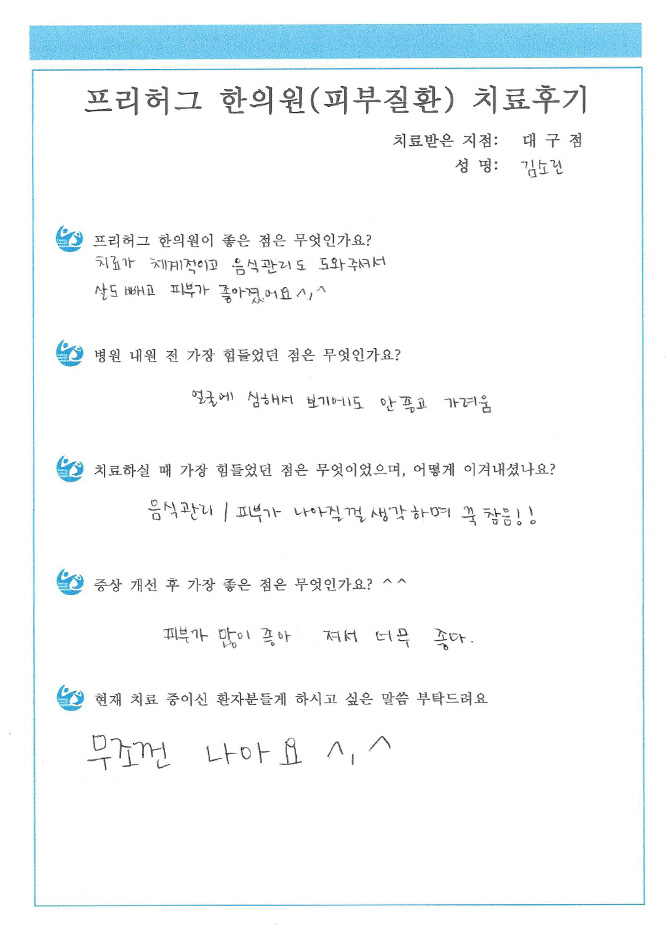 프리허그 한의원(피부질환) 치료후기
치료받은 지점: 대 구 점
성 명: 김소린
프리허그 한의원이 좋은 점은 무엇인가요?
치료가 체계적이고 음식관리도 도와주셔서
살도 빼고 피부가 좋아졌어요^,^
병원 내원 전 가장 힘들었던 점은 무엇인가요?
얼굴에 심해서 보기에도 안좋고 가려움
치료하실 때 가장 힘들었던 점은 무엇이었으며, 어떻게 이겨내셨나요?
음식관리 / 피부가 나아질껄 생각하며 꾹 참음!!
증상 개선 후 가장 좋은 점은 무엇인가요? ^^
피부가 많이 좋아 져서 너무 좋다.
현재 치료 중이신 환자분들게 하시고 싶은 말씀 부탁드려요
무조껀 나아요 ^,^